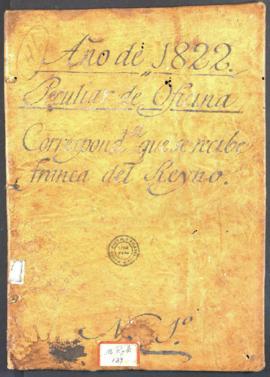 Año de 1822.
Peculiar de Oficina
Correspond.ª que se recibe
franca del Reyno.
N. 1.º